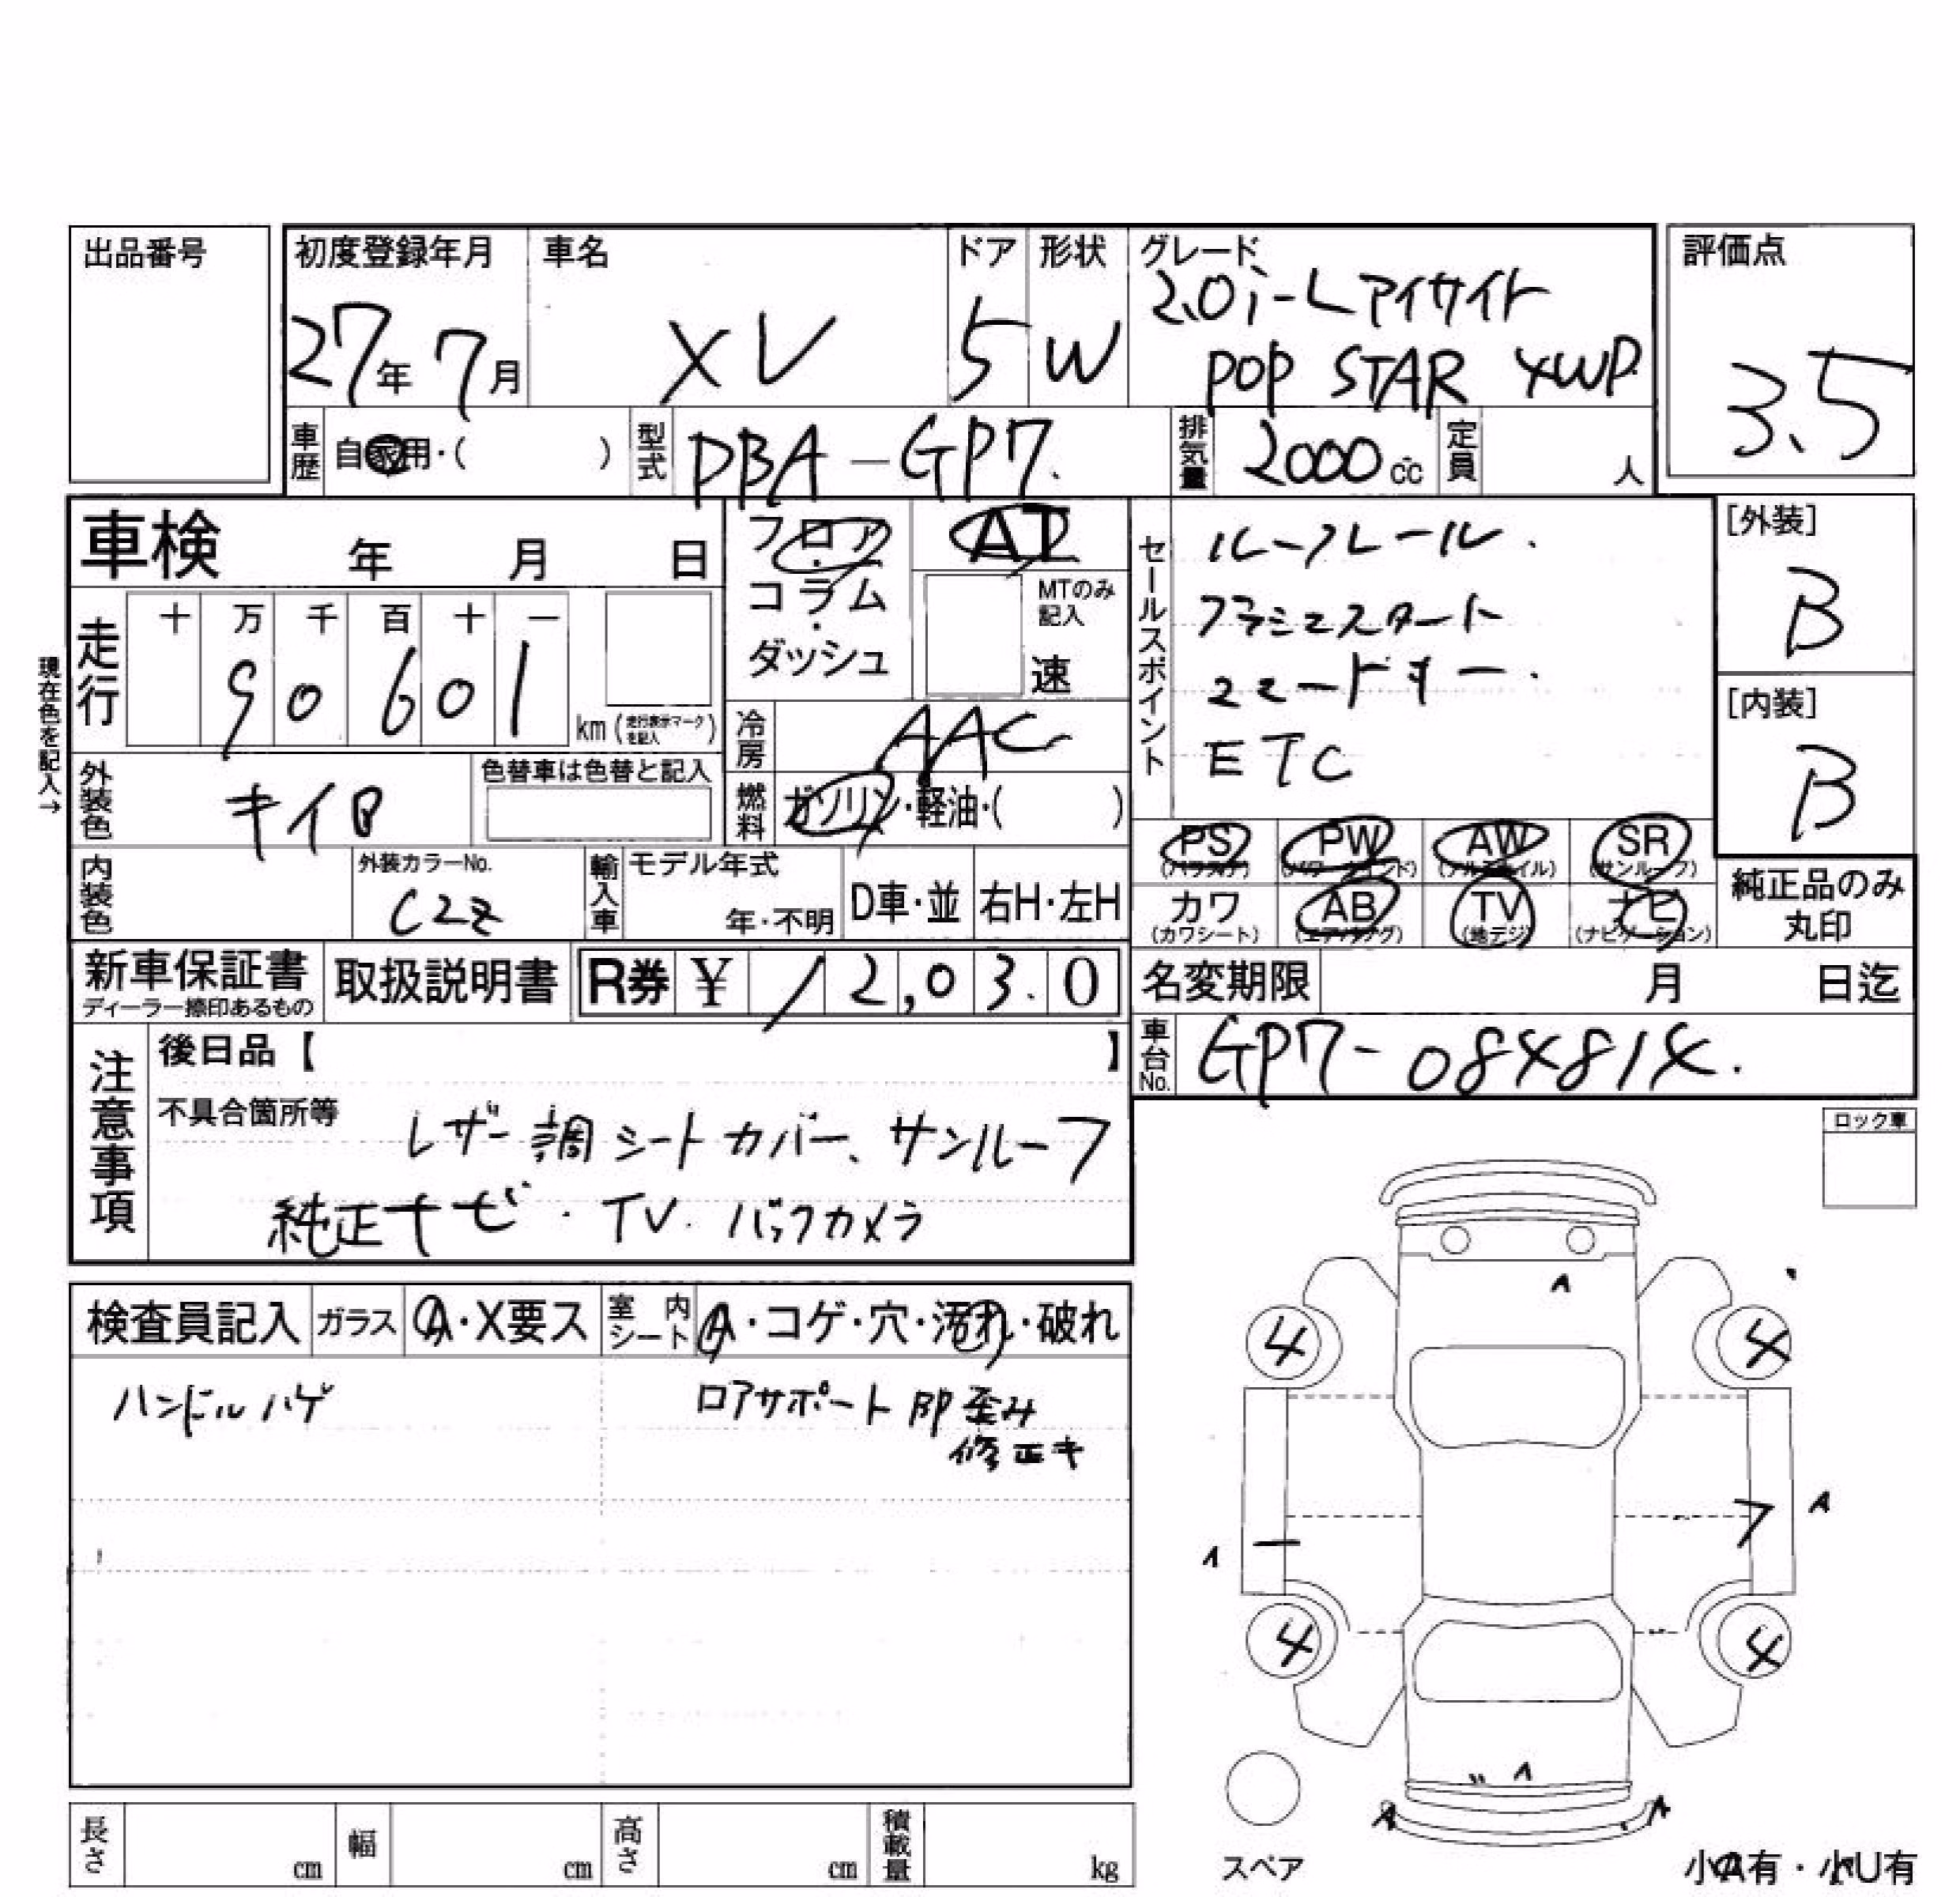 出品番号
初度登録年月
27年 7月
車名
XV
ドア
5
形状
W
グレード
2.0i-L アイサイト
POP STAR 4WD
評価点
3.5
車歴
自家用・( )
型式
DBA-GP7.
排気量
2000 cc
定員
人
車検 年 月 日
フロア
・
コラム
・
ダッシュ
AT
MTのみ
記入
速
セールスポイント
ルーフレール.
プッシュスタート
スマートキー.
ETC
[外装]
B
[内装]
B
現在色を記入→
走行
十 万 千 百 十 一
9 0 6 0 1
km (走行表示マークを記入)
冷房
AAC
外装色
キイP
色替車は色替と記入
燃料
ガソリン・軽油・( )
PS PW AW SR
(パワステ) (パワーウインド) (アルミホイル) (サンルーフ)
カワ AB TV ナビ
(カワシート) (エアバッグ) (地デジ) (ナビゲーション)
純正品のみ
丸印
内装色
外装カラーNo.
C2Z
輸入車
モデル年式
年・不明
D車・並
右H・左H
新車保証書
ディーラー捺印あるもの
取扱説明書
R券 ¥ 12,030
名変期限 月 日迄
車台No.
GP7-084814.
注意事項
後日品【 】
不具合箇所等
レザー調シートカバー、サンルーフ
純正ナビ・TV. バックカメラ
ロック車
検査員記入
ガラス
A・X要ス
室内
シート
A・コゲ・穴・汚れ・破れ
ハンドルハゲ
ロアサポート部歪み
修正キ
A
4 4
A
A
4 4
A
A A
スペア
長さ cm
幅 cm
高さ cm
積載量 kg
小A有・小U有